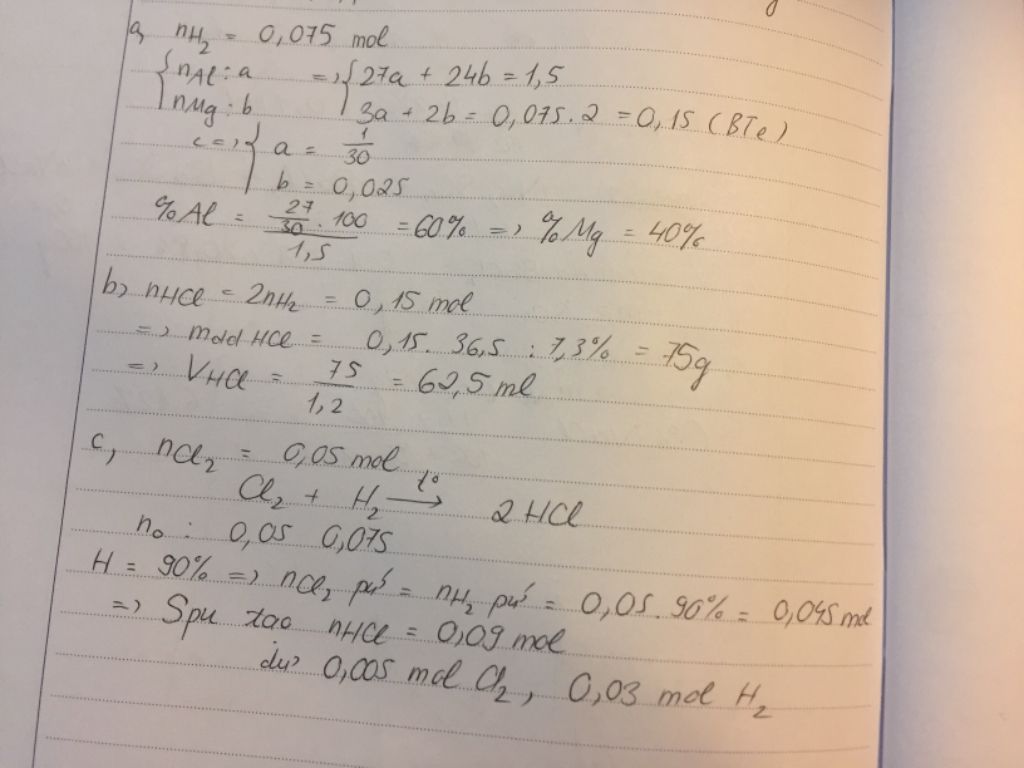 a, nH₂ = 0,075 mol
{ nAl : a => { 27a + 24b = 1,5
nMg : b 3a + 2b = 0,075.2 = 0,15 (BTe)
<=> { a = 1/30
b = 0,025
%Al = 27/30 . 100 / 1,5 = 60% => %Mg = 40%
b, nHCl = 2nH₂ = 0,15 mol
=> mdd HCl = 0,15. 36,5 : 7,3% = 75g
=> VHCl = 75/1,2 = 62,5 ml
c, nCl₂ = 0,05 mol
Cl₂ + H₂ —t°→ 2HCl
n₀ : 0,05 0,075
H = 90% => nCl₂ pứ = nH₂ pứ = 0,05. 90% = 0,045 mol
=> Spu tạo nHCl = 0,09 mol
dư 0,005 mol Cl₂, 0,03 mol H₂